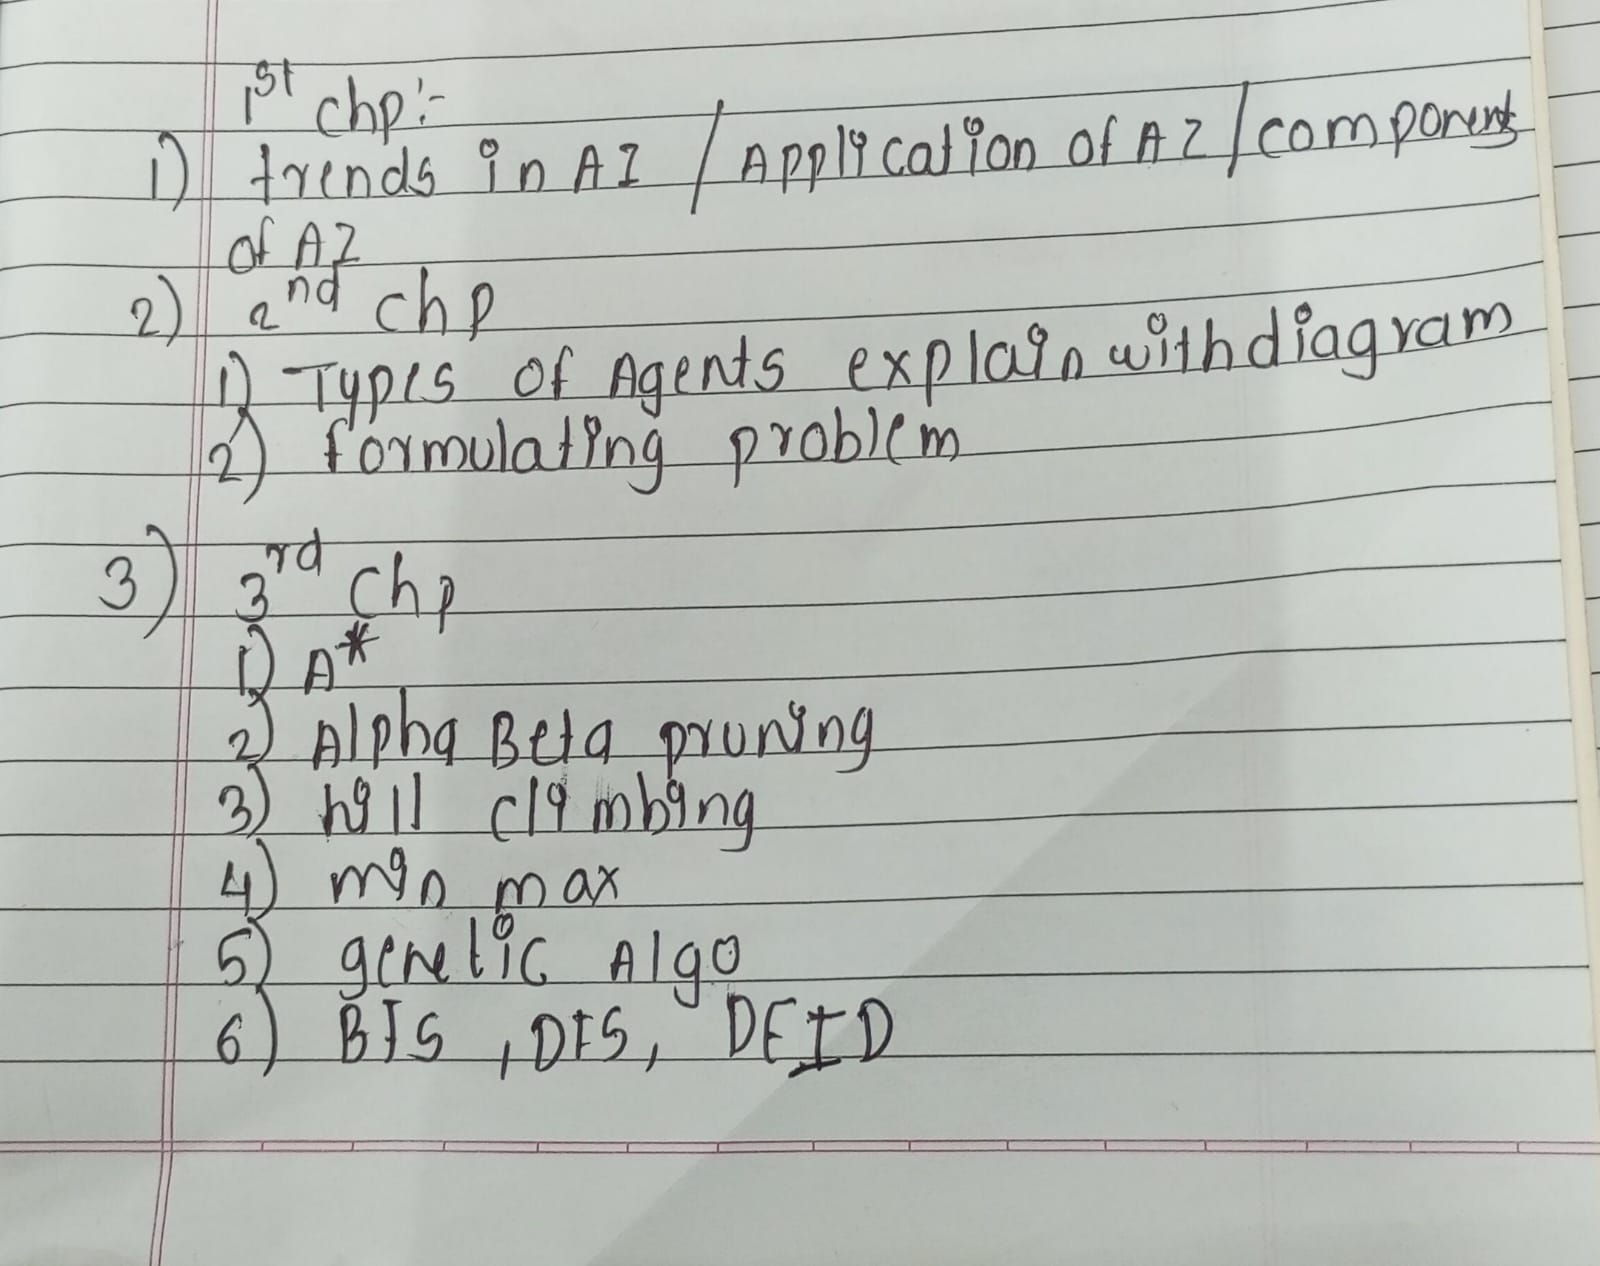 1st chp:-
1) trends in AI / Application of AI / components
of AI
2) 2nd chp
1) Types of Agents explain with diagram
2) formulating problem
3) 3rd chp
1) A*
2) Alpha Beta pruning
3) hill climbing
4) min max
5) genetic Algo
6) BFS, DFS, DFID